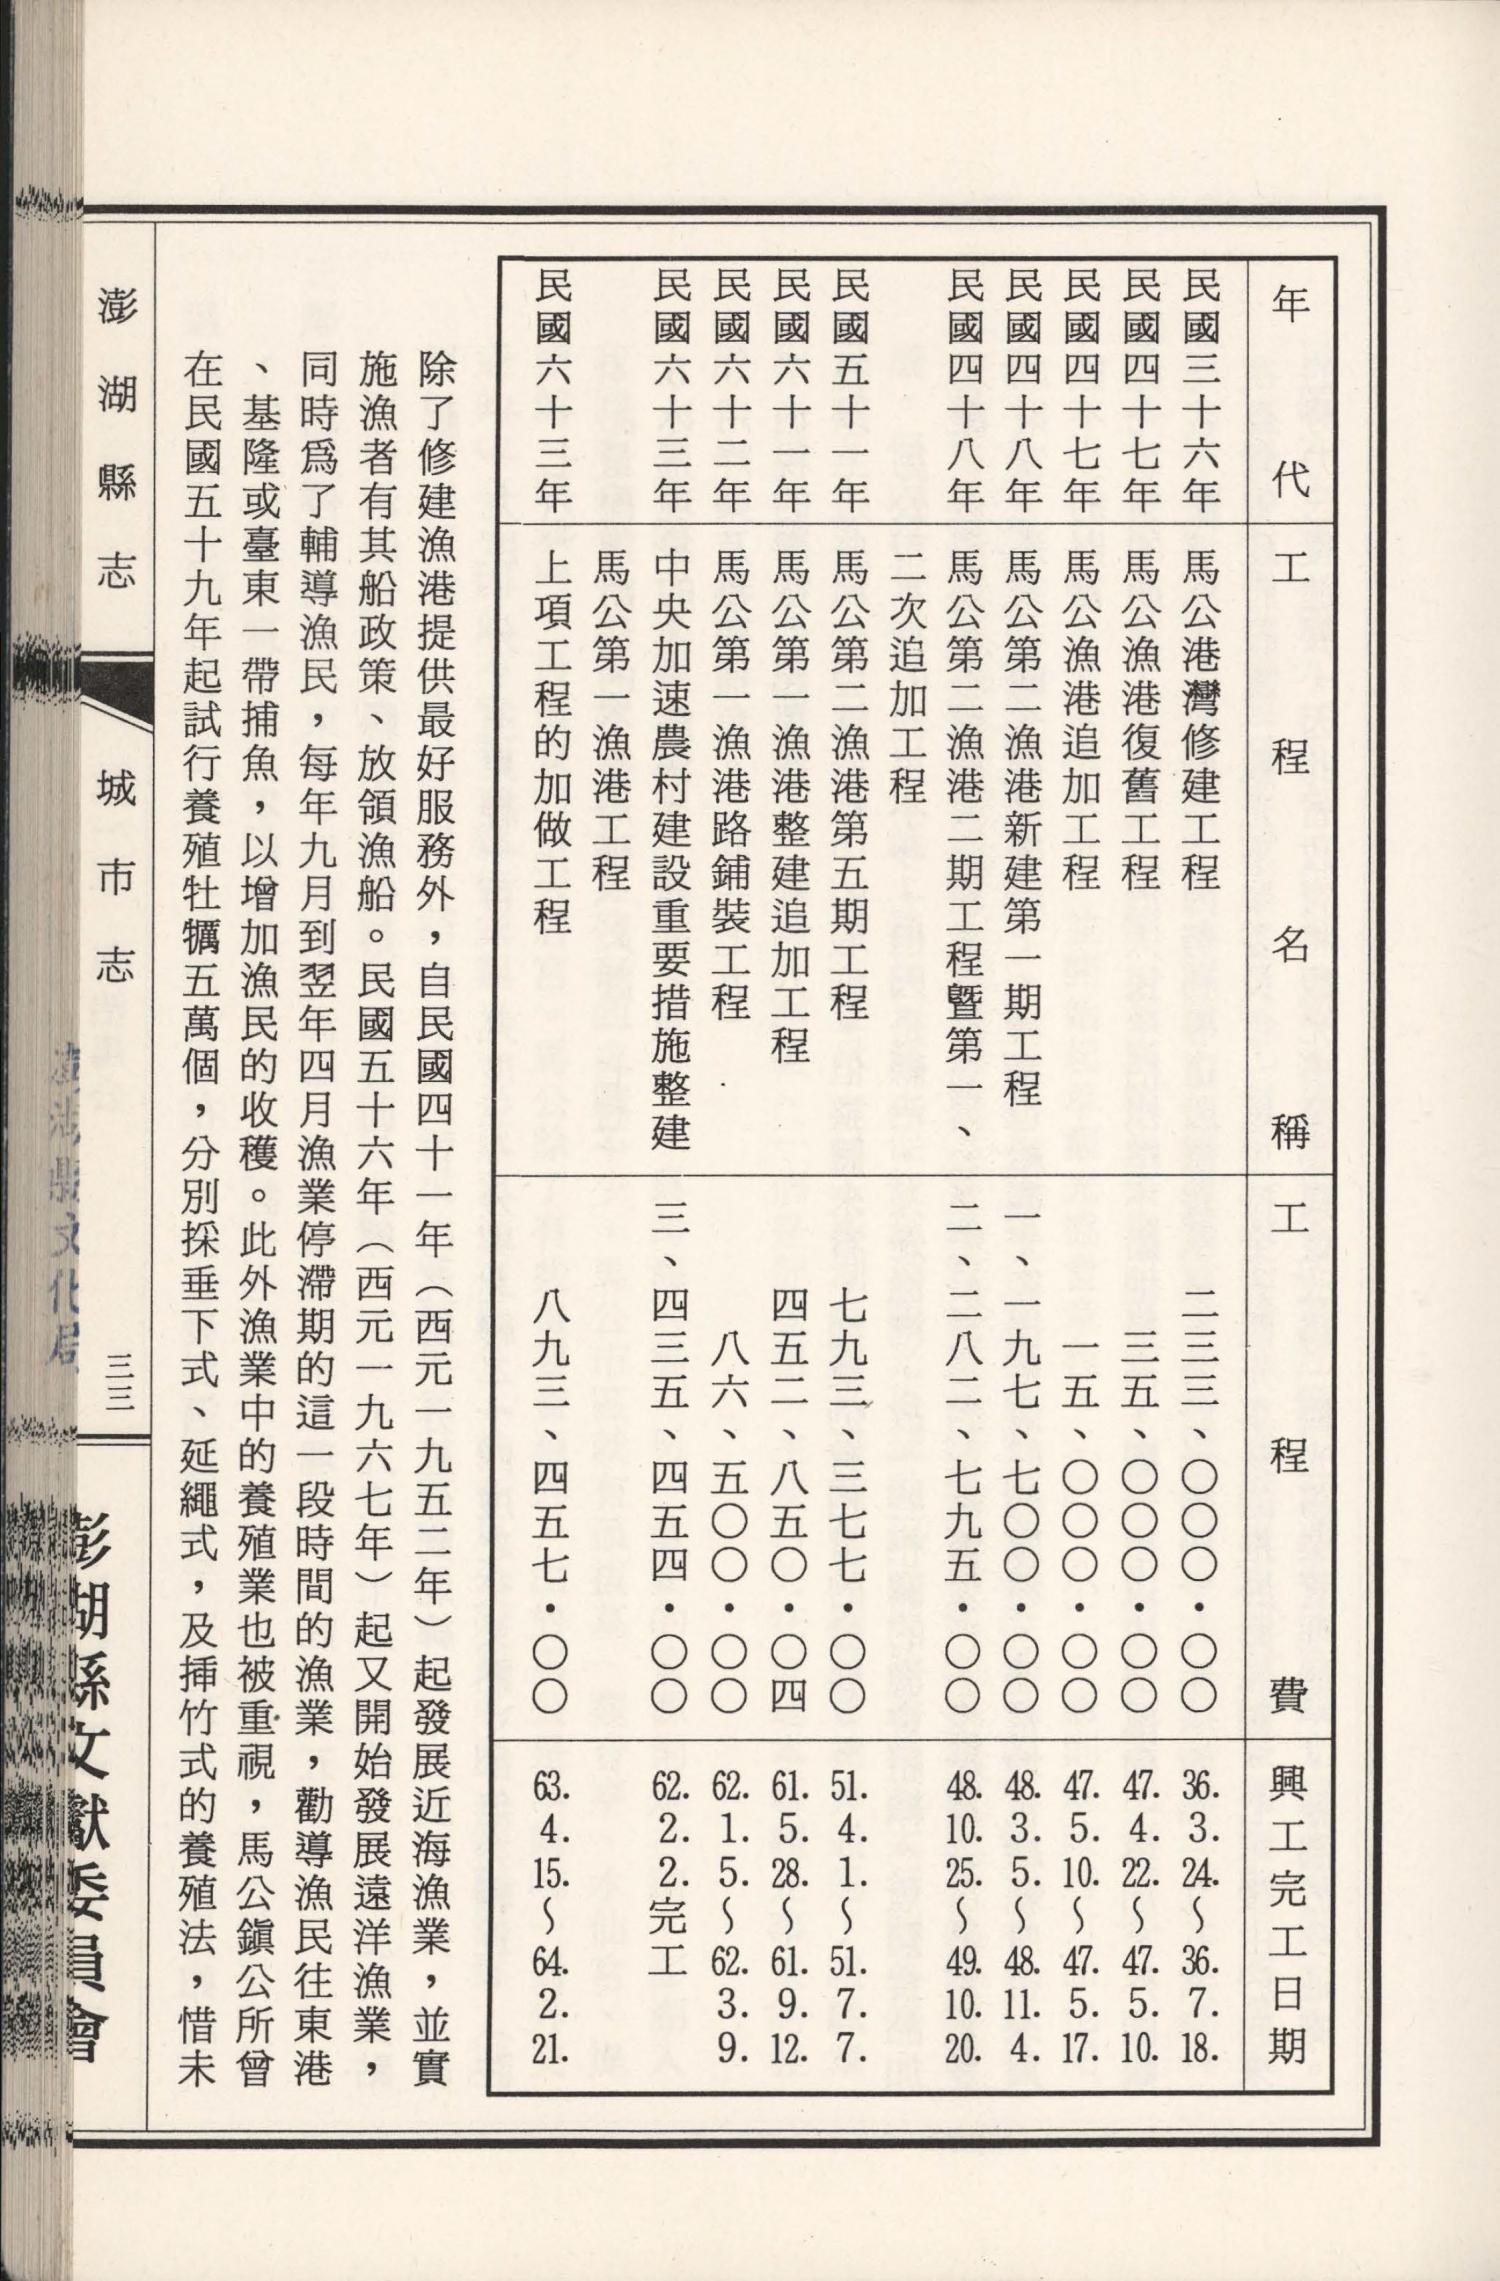 年代
工程名稱
工程費
興工完工日期
民國三十六年
馬公港灣修建工程
二三三、〇〇〇・〇〇
36.3.24.～36.7.18.
民國四十七年
馬公漁港復舊工程
三五、〇〇〇・〇〇
47.4.22.～47.5.10.
民國四十七年
馬公漁港追加工程
一五、〇〇〇・〇〇
47.5.10.～47.5.17.
民國四十八年
馬公第二漁港新建第一期工程
一、一九七、七〇〇・〇〇
48.3.5.～48.11.4.
民國四十八年
馬公第二漁港二期工程暨第一、
二次追加工程
二、二八二、七九五・〇〇
48.10.25.～49.10.20.
民國五十一年
馬公第二漁港第五期工程
七九三、三七七・〇〇
51.4.1.～51.7.7.
民國六十一年
馬公第一漁港整建追加工程
四五二、八五〇・〇四
61.5.28.～61.9.12.
民國六十二年
馬公第一漁港路鋪裝工程
八六、五〇〇・〇〇
62.1.5.～62.3.9.
民國六十三年
中央加速農村建設重要措施整建
馬公第一漁港工程
三、四三五、四五四・〇〇
62.2.2.完工
民國六十三年
上項工程的加做工程
八九三、四五七・〇〇
63.4.15.～64.2.21.
除了修建漁港提供最好服務外，自民國四十一年（西元一九五二年）起發展近海漁業，並實
施漁者有其船政策、放領漁船。民國五十六年（西元一九六七年）起又開始發展遠洋漁業，
同時爲了輔導漁民，每年九月到翌年四月漁業停滯期的這一段時間的漁業，勸導漁民往東港
、基隆或臺東一帶捕魚，以增加漁民的收穫。此外漁業中的養殖業也被重視，馬公鎭公所曾
在民國五十九年起試行養殖牡犡五萬個，分別採垂下式、延繩式，及揷竹式的養殖法，惜未
澎湖縣志
城市志
三三
澎湖縣文獻委員會
澎湖縣文化局